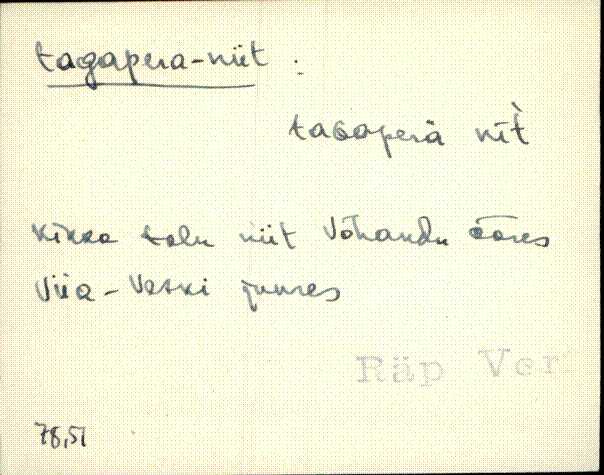 tagapera-niit :
tagaperä nīt̀
Kikka talu niit Võhandu ääres
Viia-Veski juures
Räp Ver
78,51